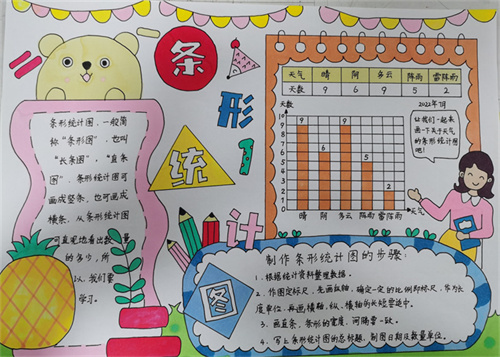 条
形
统
计
图
条形统计图,一般简
称“条形图”,也叫
“长条图”,“直条
图”,条形统计图可
画成竖条,也可画成
横条,从条形统计图
可直观地看出数量
的多少,所
以,我们要
学习。
天气 晴 阴 多云 阵雨 雷阵雨
天数 9 6 9 5 2
天数 2022年7月
10
9
8
7
6
5
4
3
2
1
0
9 6 9 5 2
晴 阴 多云 阵雨 雷阵雨 天气
让我们一起来
画一下关于天气
的条形统计图
吧!
制作条形统计图的步骤:
1、根据统计资料整理数据。
2、作图定标尺,先画纵轴,确定一定的比例即标尺,作为长
度单位,再画横轴,纵、横轴的长短要适中。
3、画直条,条形的宽度,间隔要一致。
4、写上条形统计图的总标题,制图日期及数量单位。